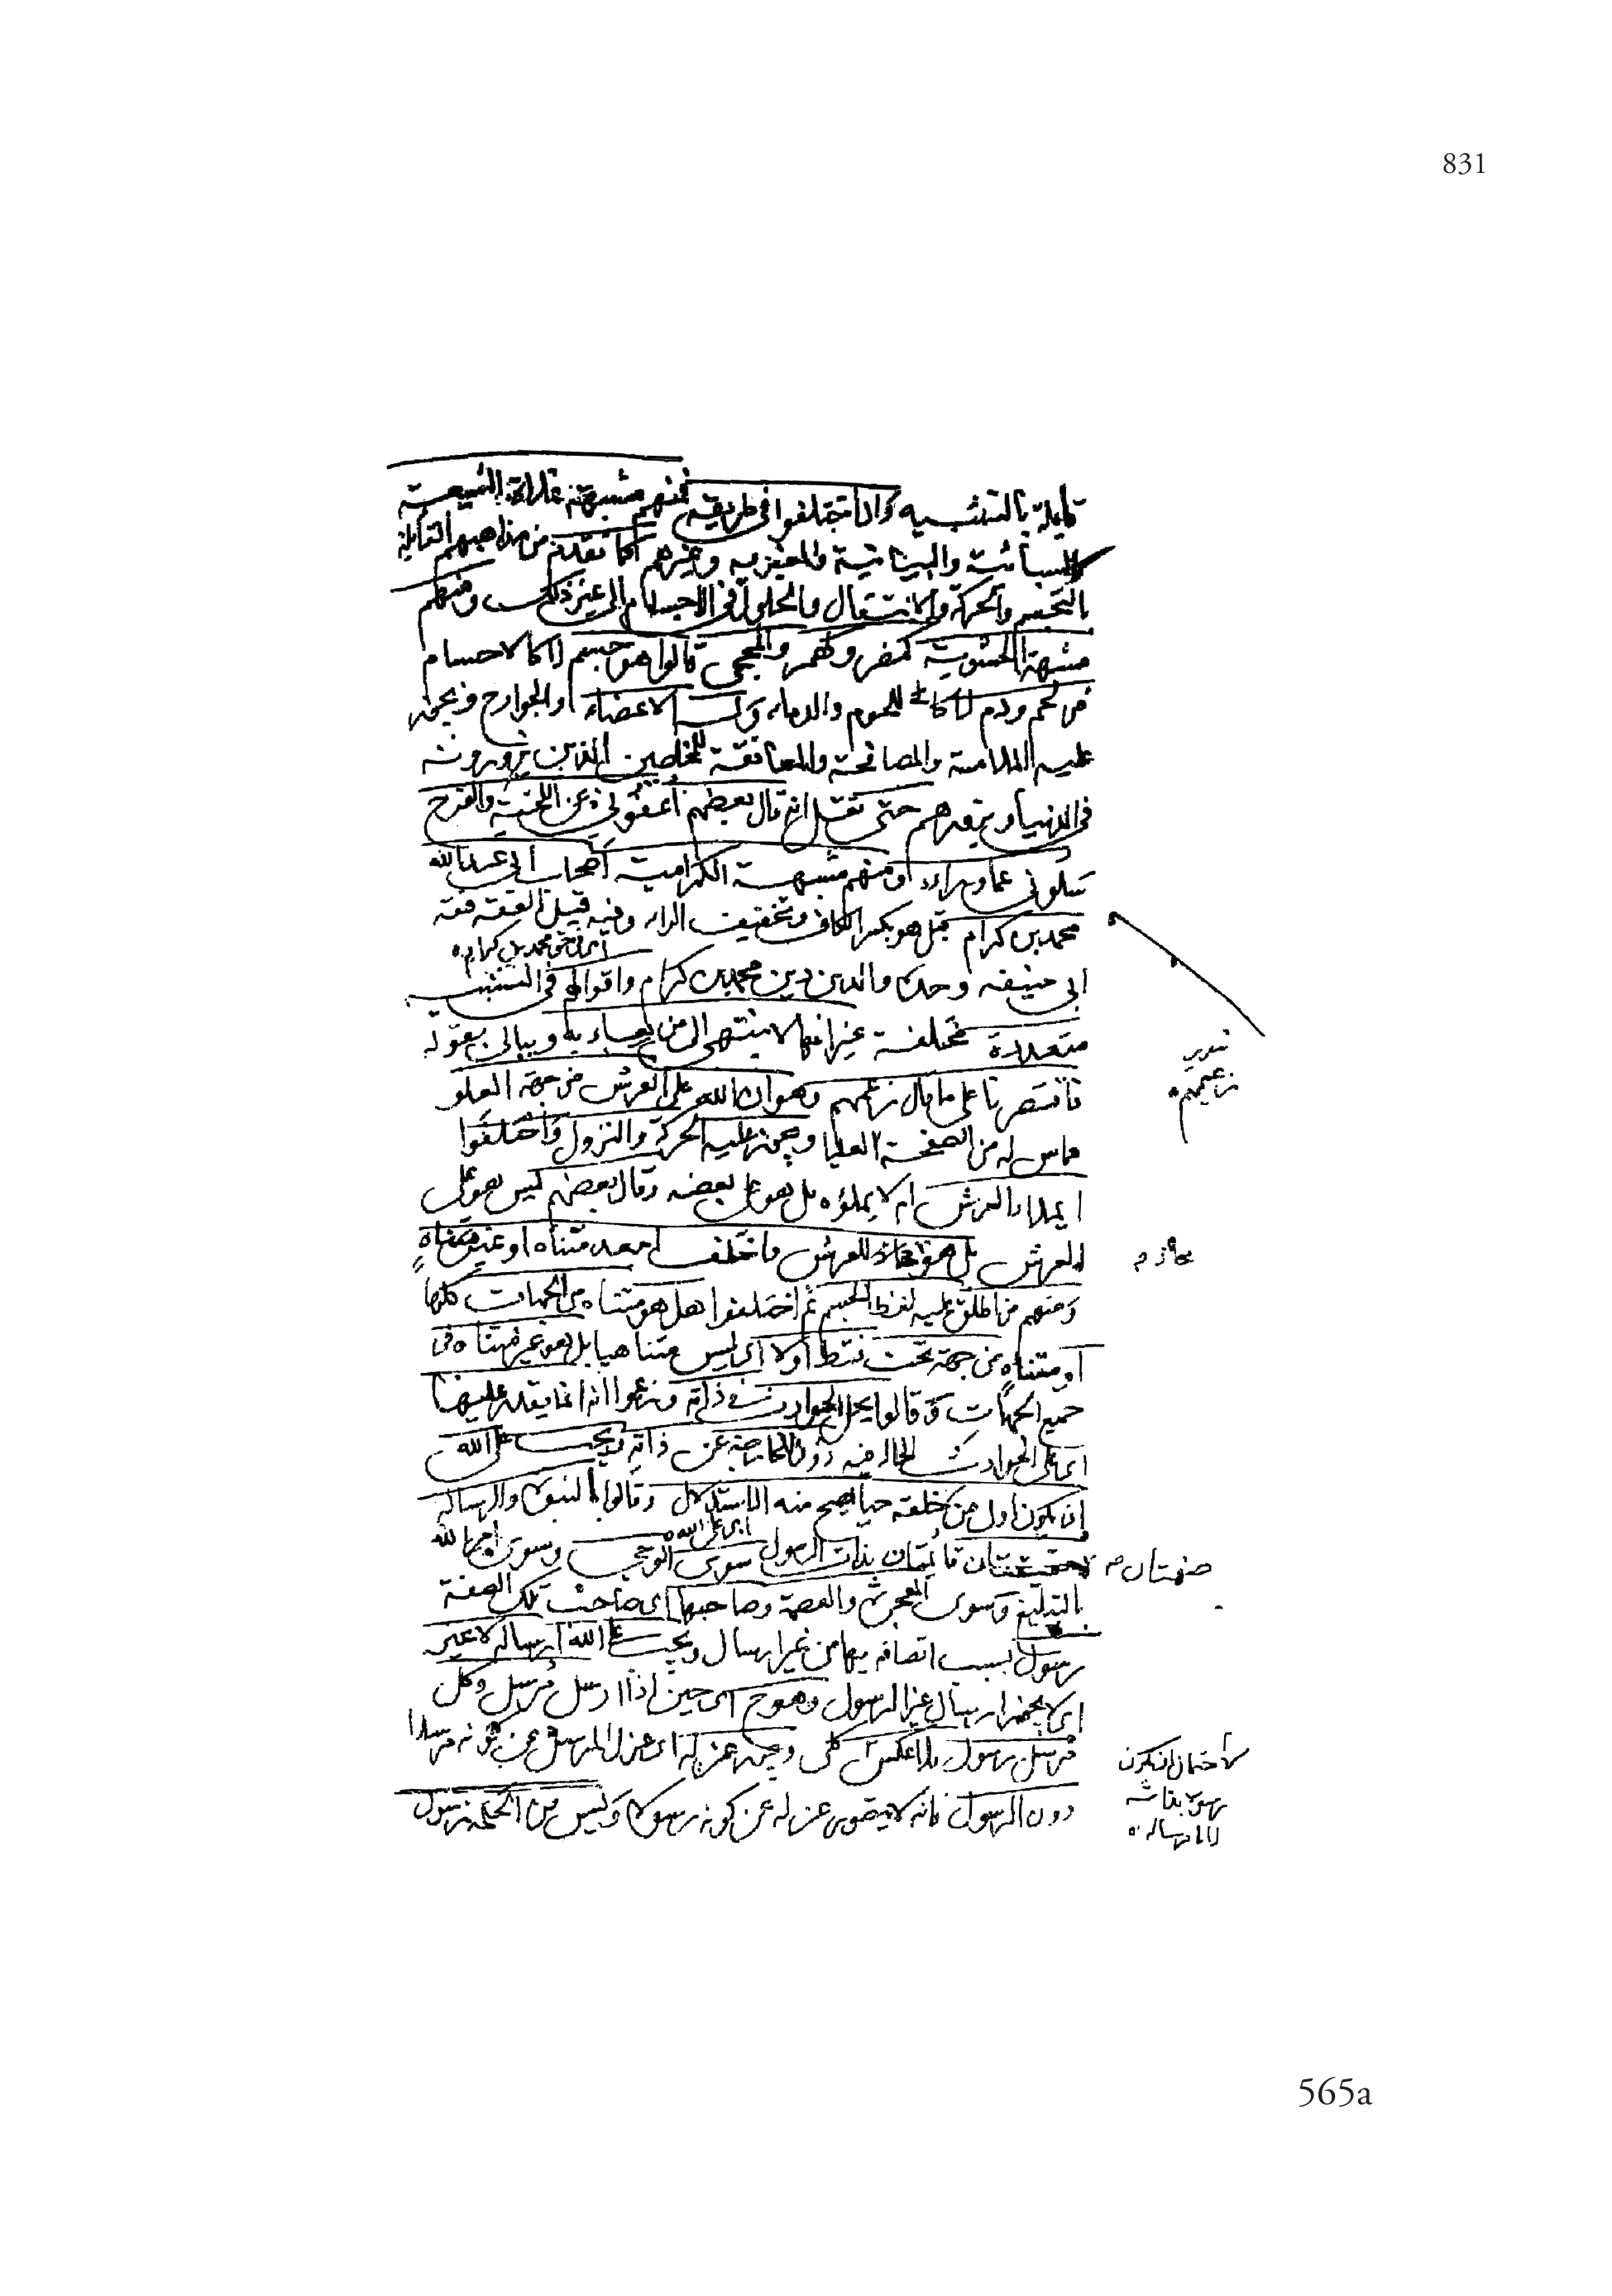 831
قايلة بالتشبيه وان اختلفوا في طريقه فمنهم مشبهة غلاة الشيعة
كالسبائية والبيانية والمغيرية وغيرهم كما تقدم من مذاهبهم القايلة
بالتجسم والحركة والانتقال والحلول في الاجسام الى غير ذلك ومنهم
مشبهة الحشوية كمضر وكهمس والهجيمي قالوا هو جسم لا كالاجسام
من لحم ودم لا كاللحوم والدماء وله الاعضاء والجوارح ويجوز
عليه الملامسة والمصافحة والمعانقة للمخلصين الذين يزورونه
في الدنيا ويزورهم حتى نقل انه قال بعضهم اعفوني عن اللحية والفرج
سلوني عما وراءه ومنهم مشبهة الكرامية اصحاب ابي عبد الله
محمد بن كرام قيل هو بكسر الكاف وتخفيف الراء وفيه قيل الفقه فقه
اي في حق محمد بن كرام
ابي حنيفة وحده والدين دين محمد بن كرام واقوالهم في التشبيه
متعددة مختلفة غير انها لا ينتهى الى من يعباء به ويبالى بقوله
فاقتصرنا على ما قال زعيمهم وهو ان الله على العرش من جهة العلو
زعيمهم
مماس له من الصفحة العليا ويجوز عليه الحركة والنزول واختلفوا
ايملاء العرش ام لا يملؤه بل هو على بعضه وقال بعضهم ليس هو على
العرش بل هو محاذ للعرش واختلف ابعد متناه او غير متناه
محاذ م
ومنهم من اطلق عليه لفظ الجسم ثم اختلفوا هل هو متناه من الجهات كلها
او متناه من جهة تحت فقط او لا اي ليس متناهيا بل هو غير متناه في
جميع الجهات وقالوا يحل الحوادث في ذاته وزعموا انه انما يقدر عليها
اي على الحوادث الحالة فيه دون الخارجة عن ذاته ويجب على الله
ان يكون اول من خلقه حيا يصح منه الاستدلال وقالوا النبوة والرسالة
اي على الله
صفتان قائمتان بذات الرسول سوى الوحي وسوى امر الله
صفتان م
بالتبليغ وسوى المعجزة والعصمة وصاحبها اي صاحب تلك الصفة
رسول بسبب اتصافه بها من غير ارسال ويجب على الله ارساله لا غير
اي لا يجوز ارسال غير الرسول وهو ح اي حين اذا ارسل مرسل وكل
مرسل رسول بلا عكس كلى ويجوز عزله اي عزل المرسل عن كونه مرسلا
لاحتمال ان يكون
رسولا بذاته
لا بارساله
دون الرسول فانه لا يتصور عزله عن كونه رسولا وليس من الحكمة رسول
565a